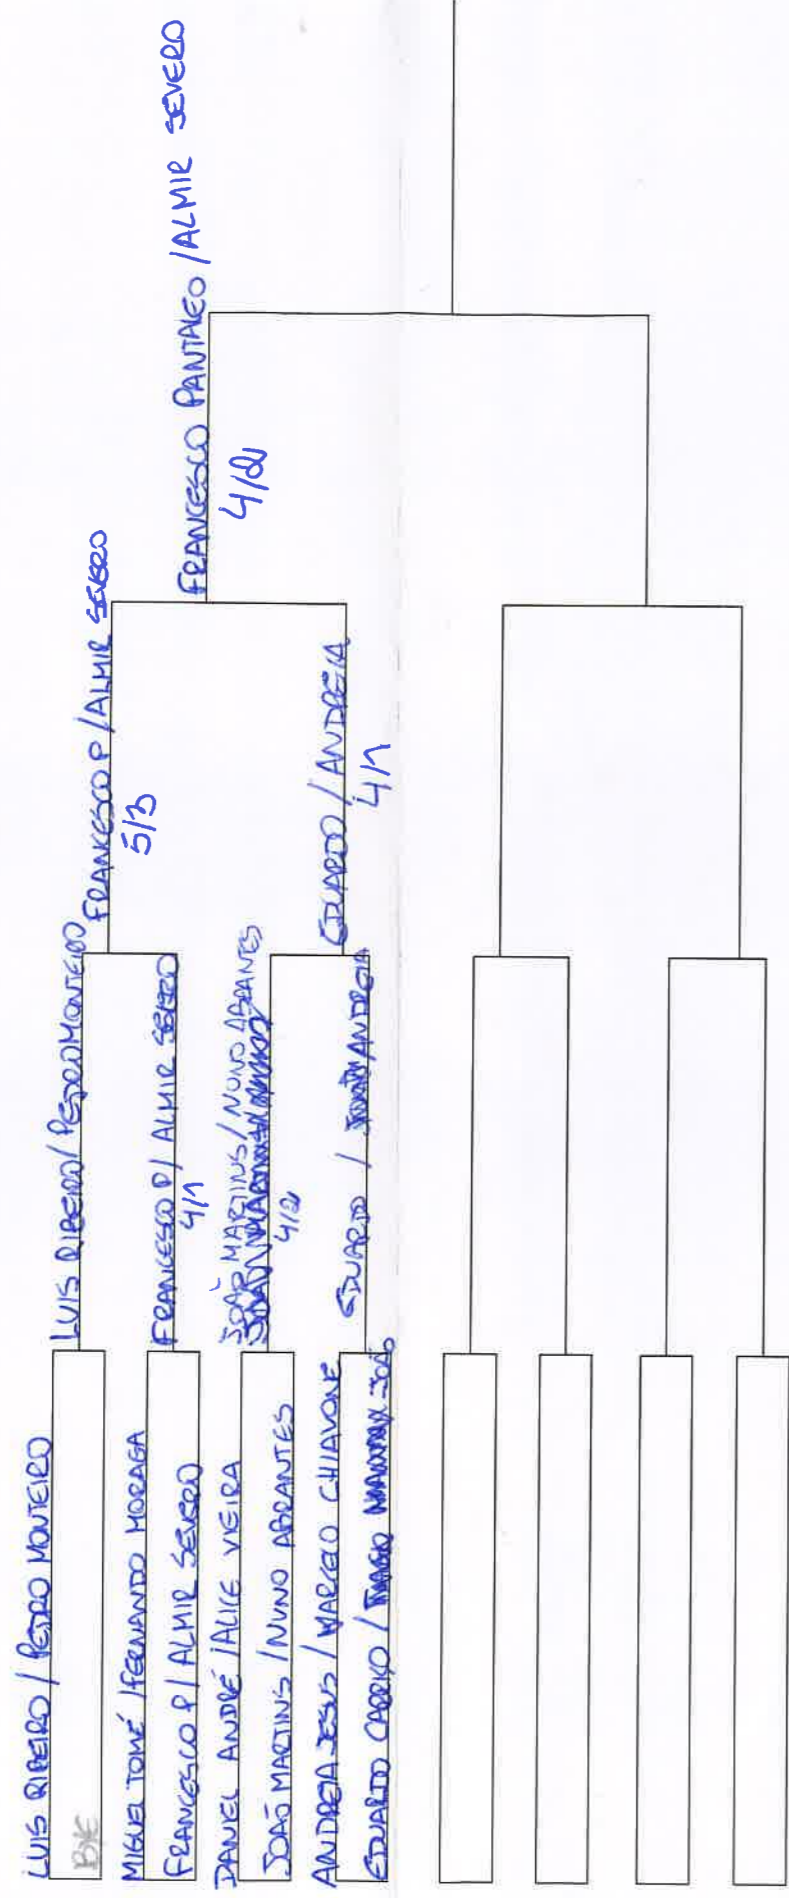 LUIS RIBEIRO / PEDRO MONTEIRO
BYE
MIGUEL TOMÉ / FERNANDO MORAGA
FRANCESCO P / ALMIR SEVERO
DANIEL ANDRÉ / ALICE VIEIRA
JOÃO MARTINS / NUNO ABRANTES
ANDREIA JESUS / MARCELO CHIAVONE
EDUARDO CARRIÇO / JOÃO
LUIS RIBEIRO / PEDRO MONTEIRO
FRANCESCO P / ALMIR SEVERO
4/1
JOÃO MARTINS / NUNO ABRANTES
4/2
EDUARDO / ANDREIA
FRANCESCO P / ALMIR SEVERO
5/3
EDUARDO / ANDREIA
4/1
FRANCESCO PANTALEO / ALMIR SEVERO
4/2